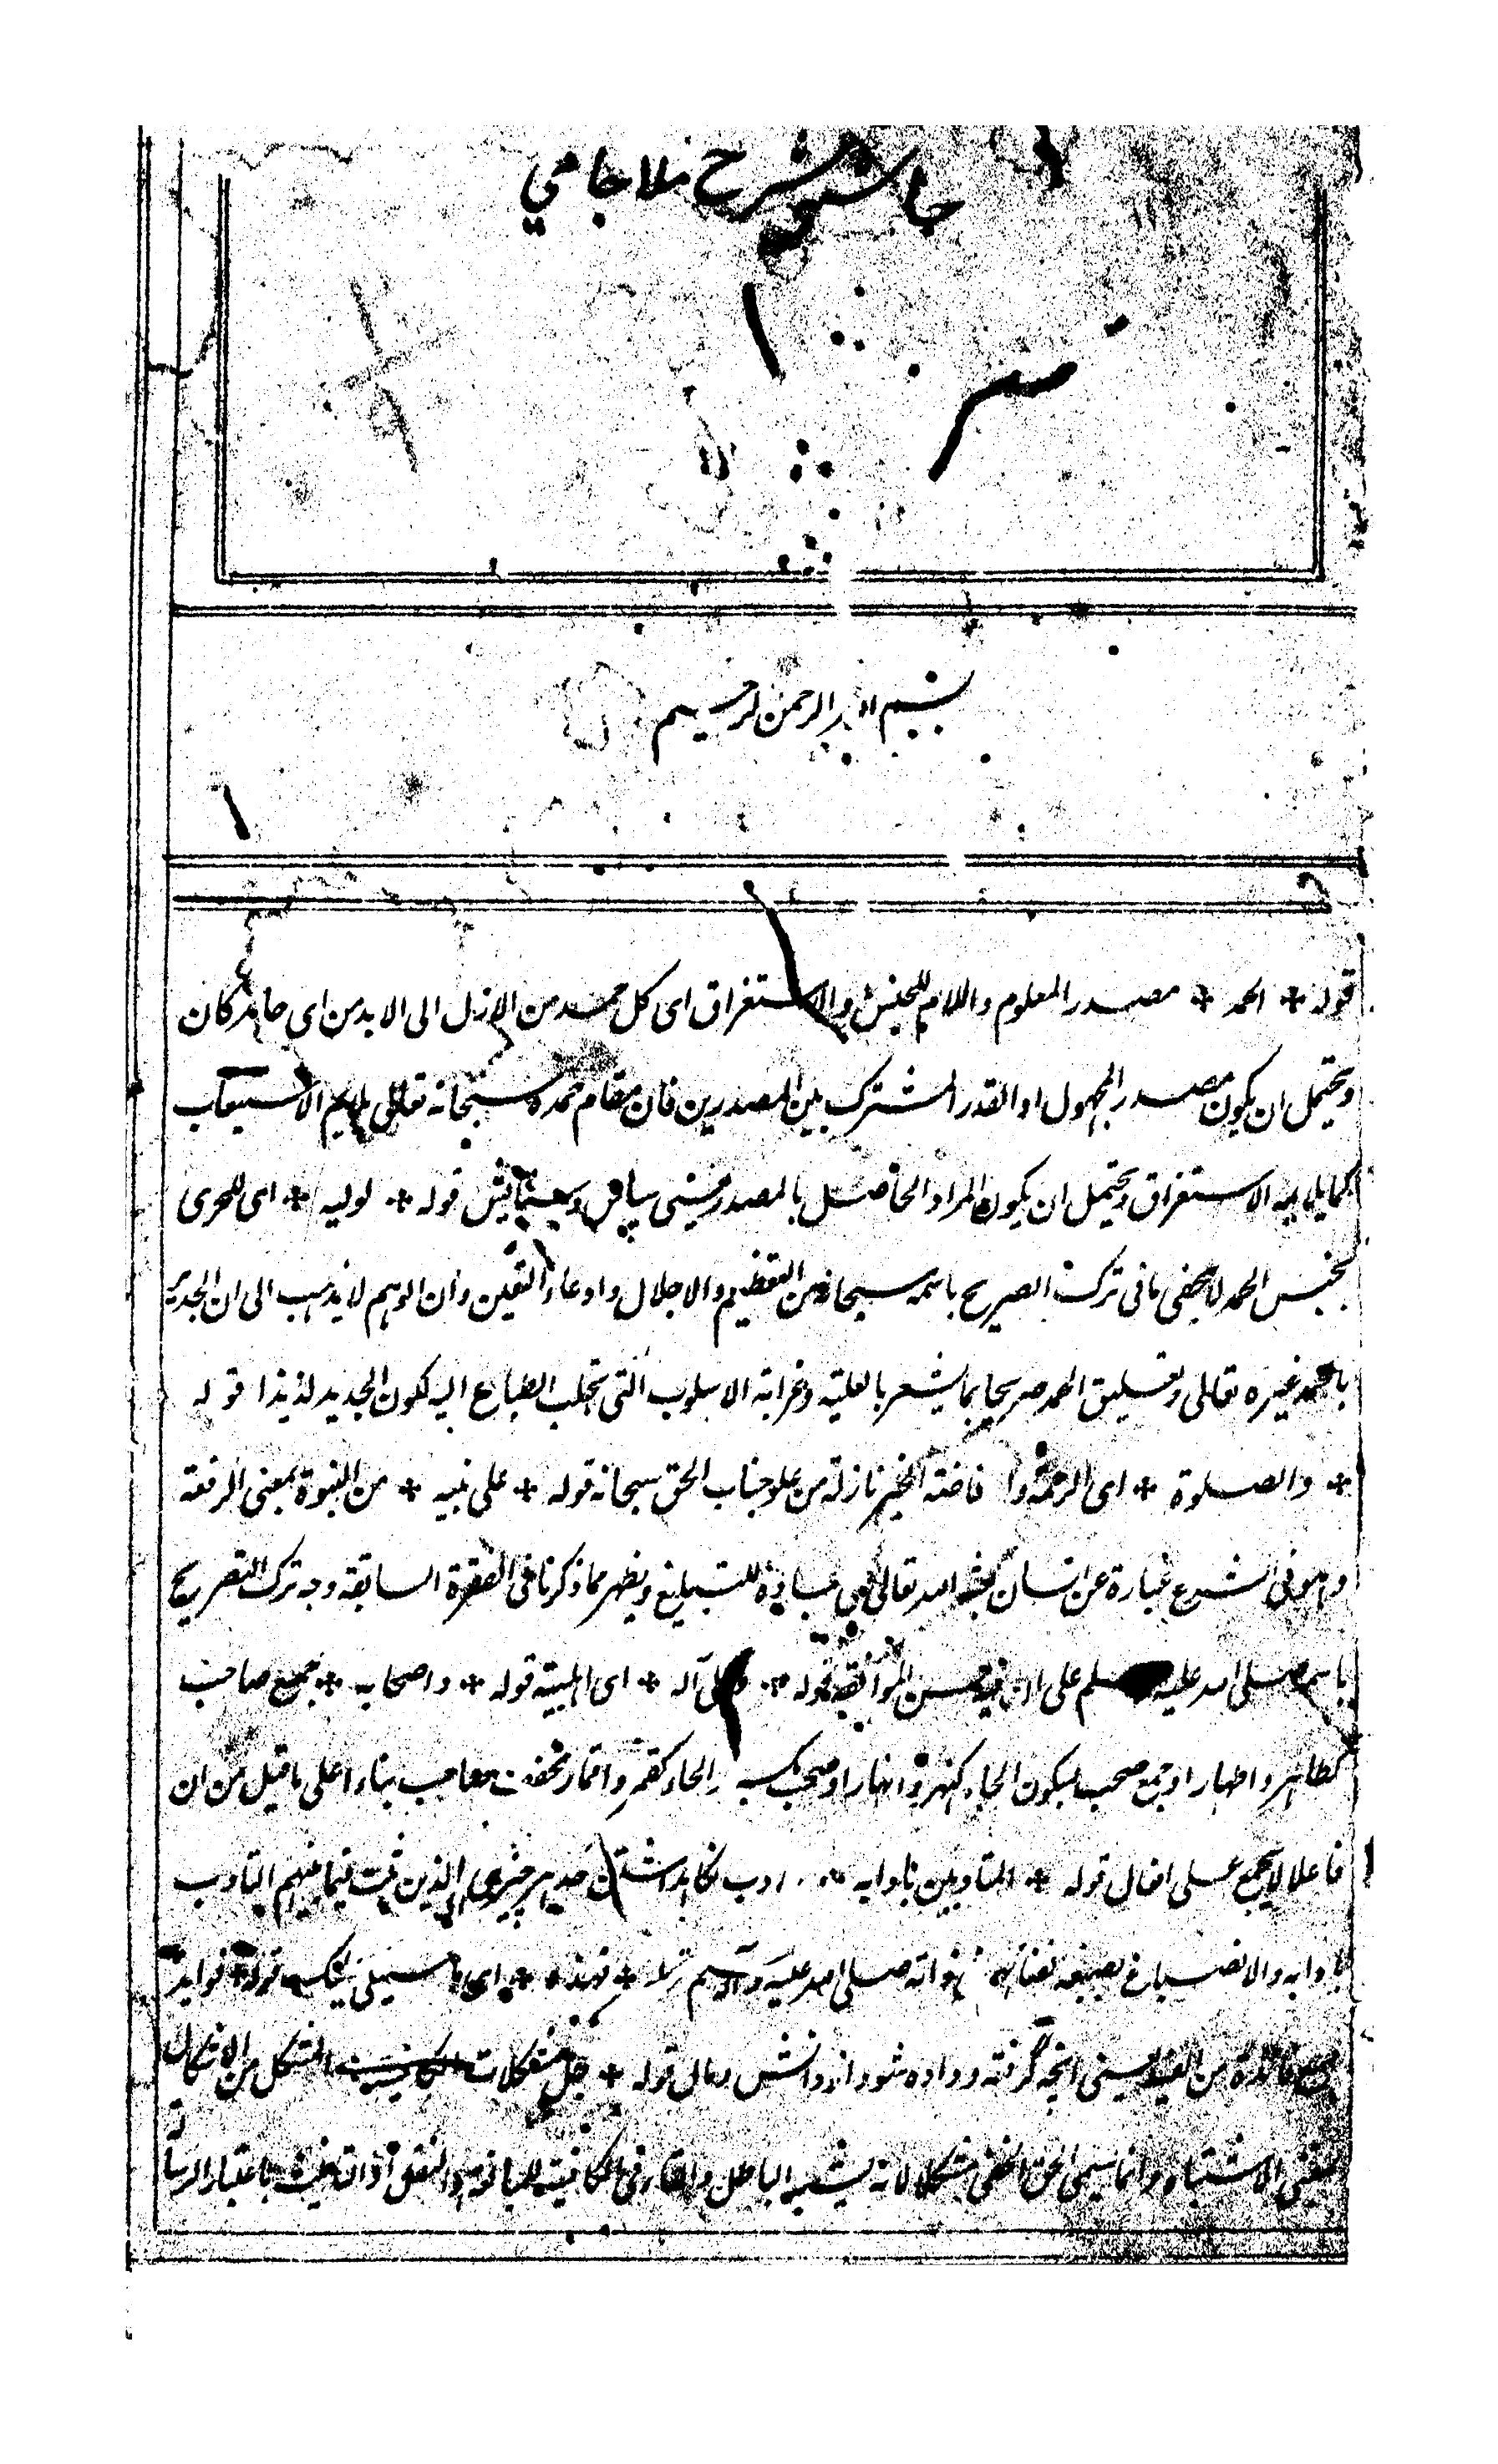 حاشیه شرح ملا جامي
بسم الله الرحمن الرحيم
قوله * الحمد * مصدر المعلوم واللام للجنس والاستغراق اى كل حمد من الازل الى الابد من اى حامد كان
ويحتمل ان يكون مصدر المجهول او القدر المشترك بين المصدرين فان مقام حمده سبحانه تعالى يلايم الاستيعاب
كما يلايمه الاستغراق ويحتمل ان يكون المراد الحاصل بالمصدر يعنى سپاس وستايش قوله * لوليه * اى للحرى
بجنس الحمد لا يخفى ما فى ترك التصريح باسمه سبحانه من التعظيم والاجلال وادعاء التعين وان الوهم لا يذهب الى ان الجدير
بالحمد غيره تعالى وتعليق الحمد صريحا بما يشعر بالعلية وغرابة الاسلوب التى تجلب الطباع اليه لكون الجديد لذيذا قوله
* والصلوة * اى الرحمة وا فاضة الخير نازلة من علو جناب الحق سبحانه قوله * على نبيه * من النبوة بمعنى الرفعة
وهو فى الشرع عبارة عن انسان بعثه الله تعالى الى عباده للتبليغ ويظهر مما ذكرنا فى الفقرة السابقة وجه ترك التصريح
باسمه صلى الله عليه وسلم على ان فيه حسن الموافقة قوله * وعلى آله * اى اهل بيته قوله * واصحابه * جمع صاحب
كطاهر واطهار او جمع صحب بسكون الحاء كنهر وانهار او صحب بكسر الحاء كنمر وانمار مخفف صاحب بناء على ما قيل من ان
فاعلا لا يجمع على افعال قوله * المتادبين بادابه * ادب نگاهداشتن حد هر چيزى اى الذين ثبت فيما بينهم التادب
بادابه والانصباغ بصبغه صلى الله عليه وآله وسلم * فهذه * اى قوله * فوايد
جمع فائدة من الفيد يعنى انچه گرفته و داده شود از دانش و مال قوله * حل مشكلات الكافية * المشكل من الاشكال
بمعنى الاشتباه وانما سمى الحق الخفى مشكلا لانه يشبه الباطل والتاء فى الكافية للمبالغة او للنقل او التانيث باعتبار الرسالة